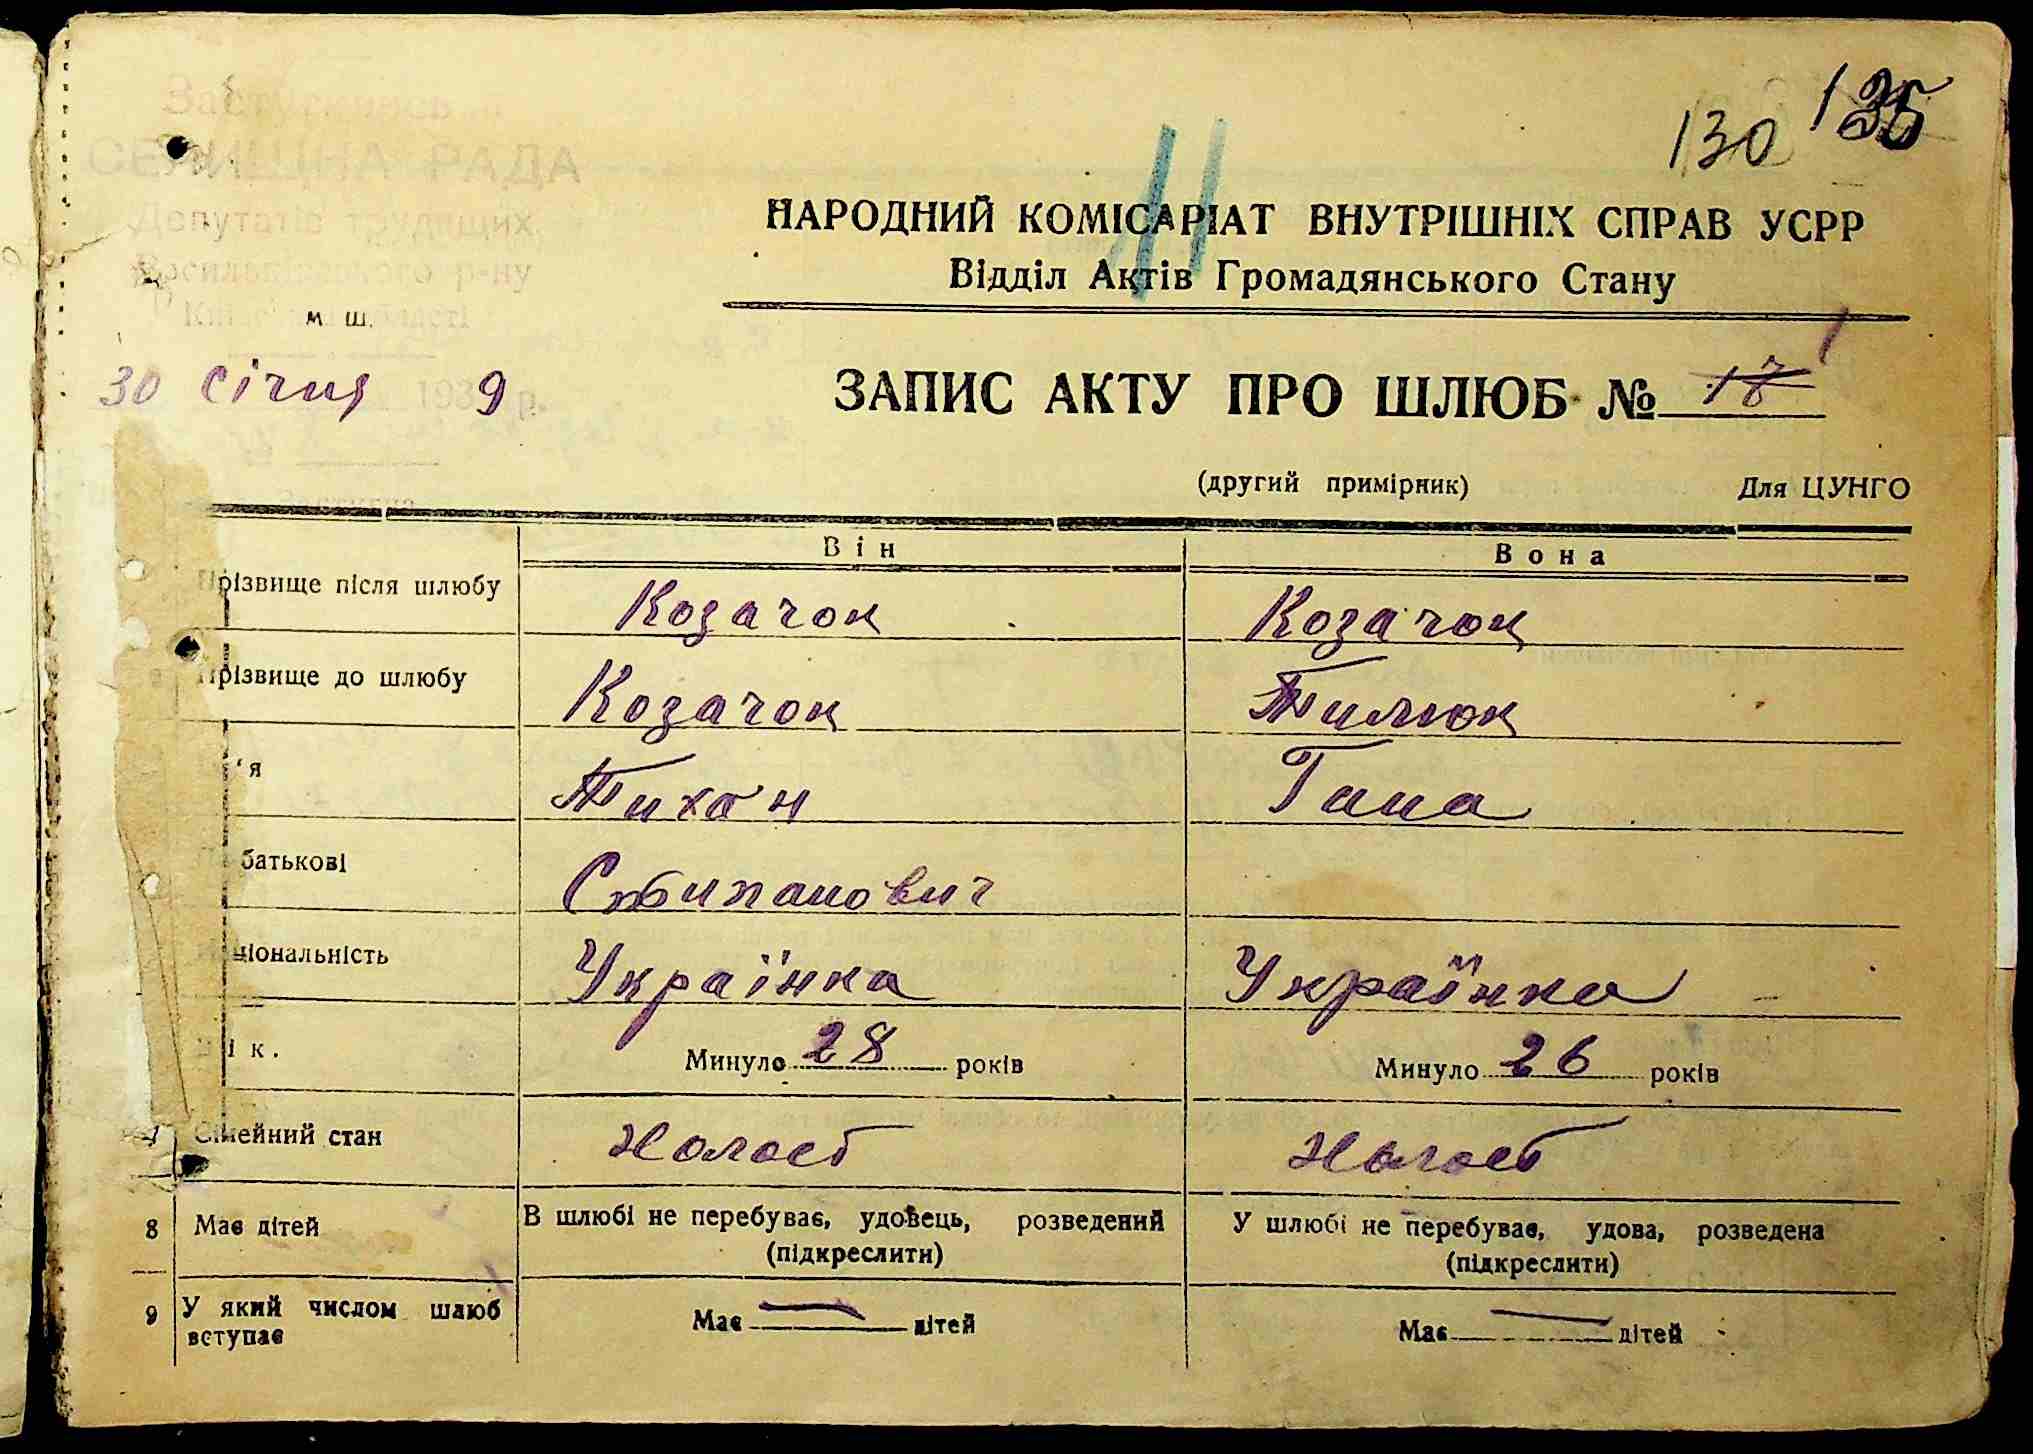 130 135
СЕЛИЩНА РАДА
Депутатів трудящих
р-ну
НАРОДНИЙ КОМІСАРІАТ ВНУТРІШНІХ СПРАВ УСРР
Відділ Актів Громадянського Стану
м. ш.
30 Січня 1939 р.
ЗАПИС АКТУ ПРО ШЛЮБ № 17 1
(другий примірник) Для ЦУНГО
Він Вона
Прізвище після шлюбу Козачок Козачок
Прізвище до шлюбу Козачок Тилюк
'я Тихон Гана
батькові Стипанович
Національність Українка Українка
Вік. Минуло 28 років Минуло 26 років
Сімейний стан холост холост
8 Має дітей В шлюбі не перебуває, удовець, розведений У шлюбі не перебуває, удова, розведена
(підкреслити) (підкреслити)
9 У який числом шлюб вступає Має — дітей Має — дітей